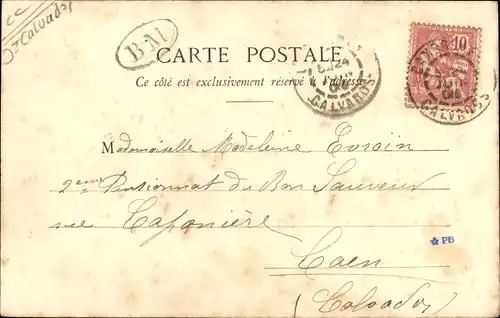 CC
Calvados
BM
CARTE POSTALE
Ce côté est exclusivement réservé à l'adresse
10
CALVADOS
CALVADOS
Mademoiselle Madeleine
2eme Pensionnat du Bon Sauveur
rue Caponière
PB
Caen
(Calvados)